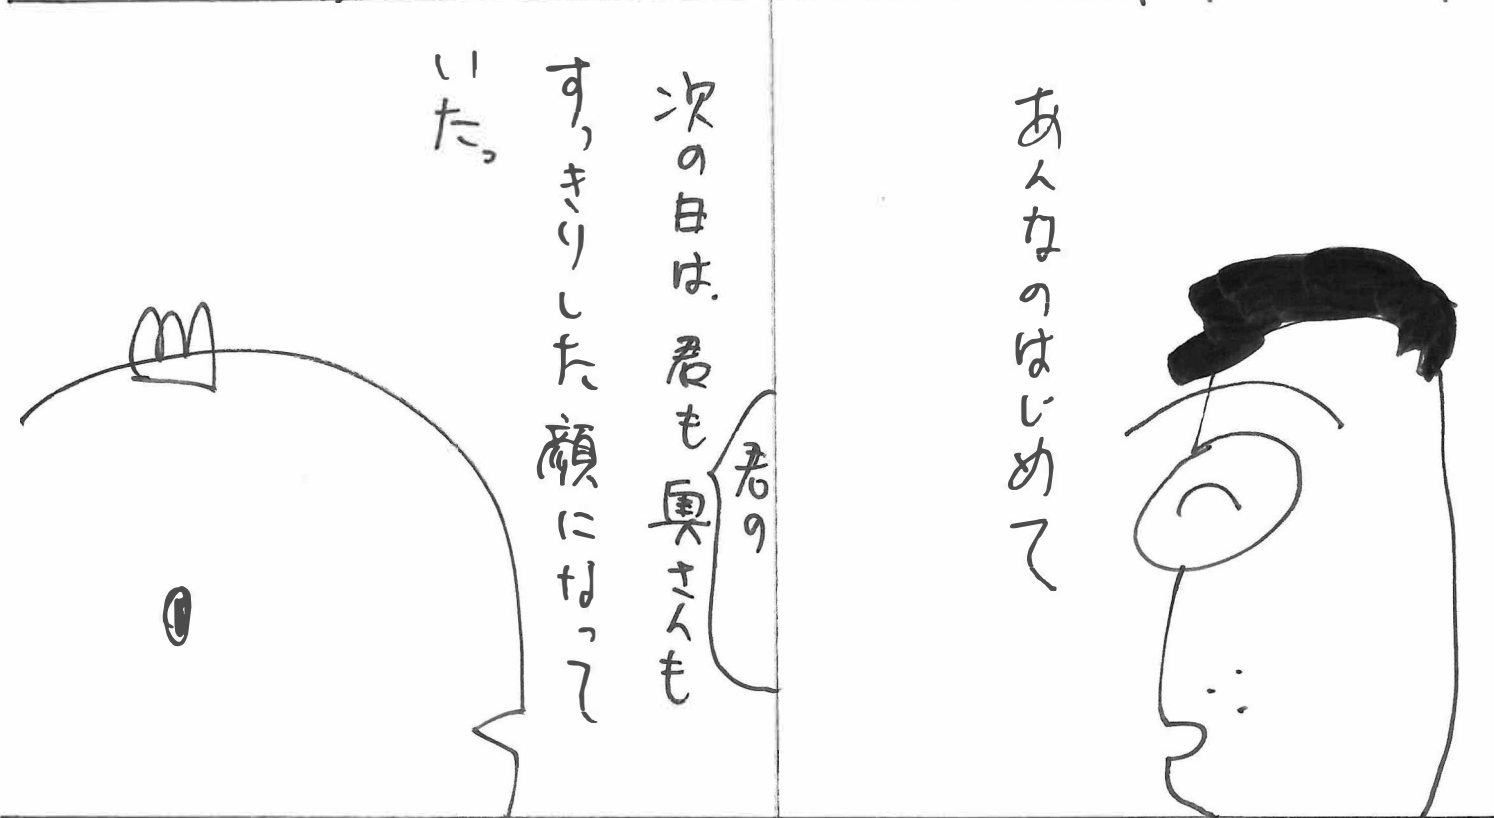 あんなのはじめて
君の
次の日は、君も奥さんも
すっきりした顔になって
いた。